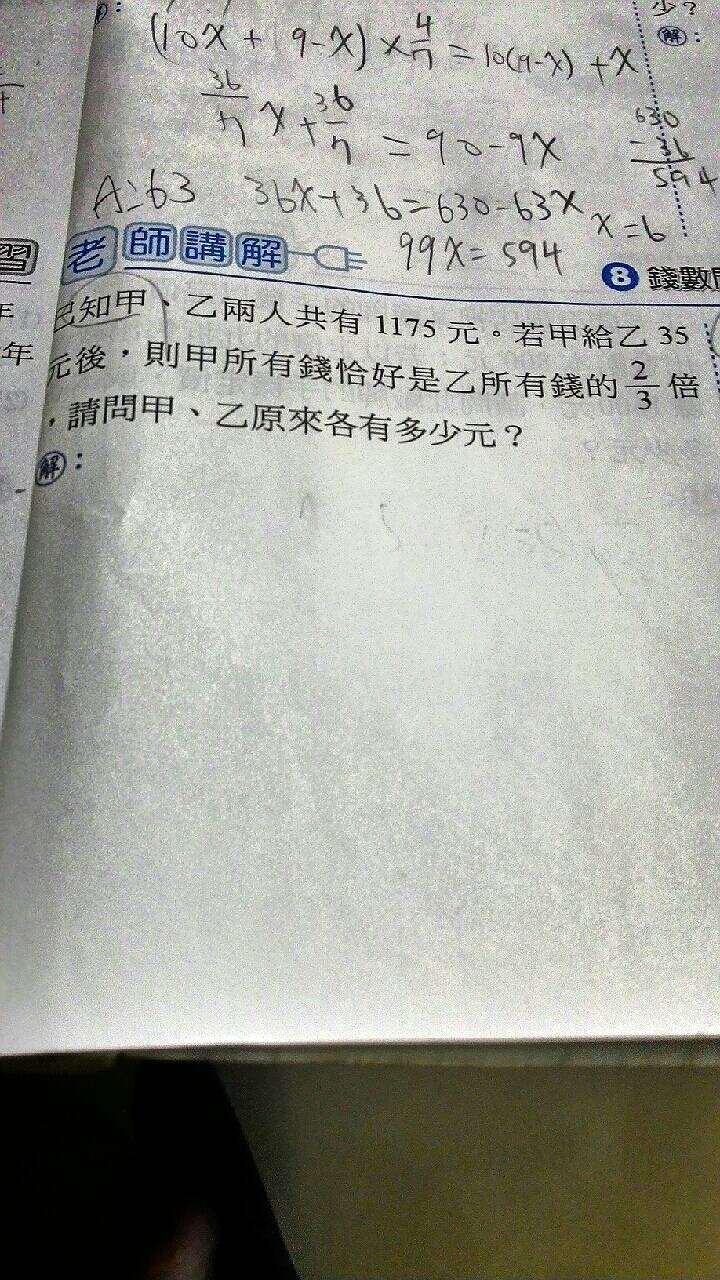 少？
解：
(10x + 9-x) × 4/7 = 10(9-x) + x
36/7 x + 36/7 = 90-9x
630
-36
594
A：63 36x+36=630-63x x=6
99x=594
習
老師講解
8 錢數
已知甲、乙兩人共有 1175 元。若甲給乙 35
年
元後，則甲所有錢恰好是乙所有錢的 2/3 倍
，請問甲、乙原來各有多少元？
解：